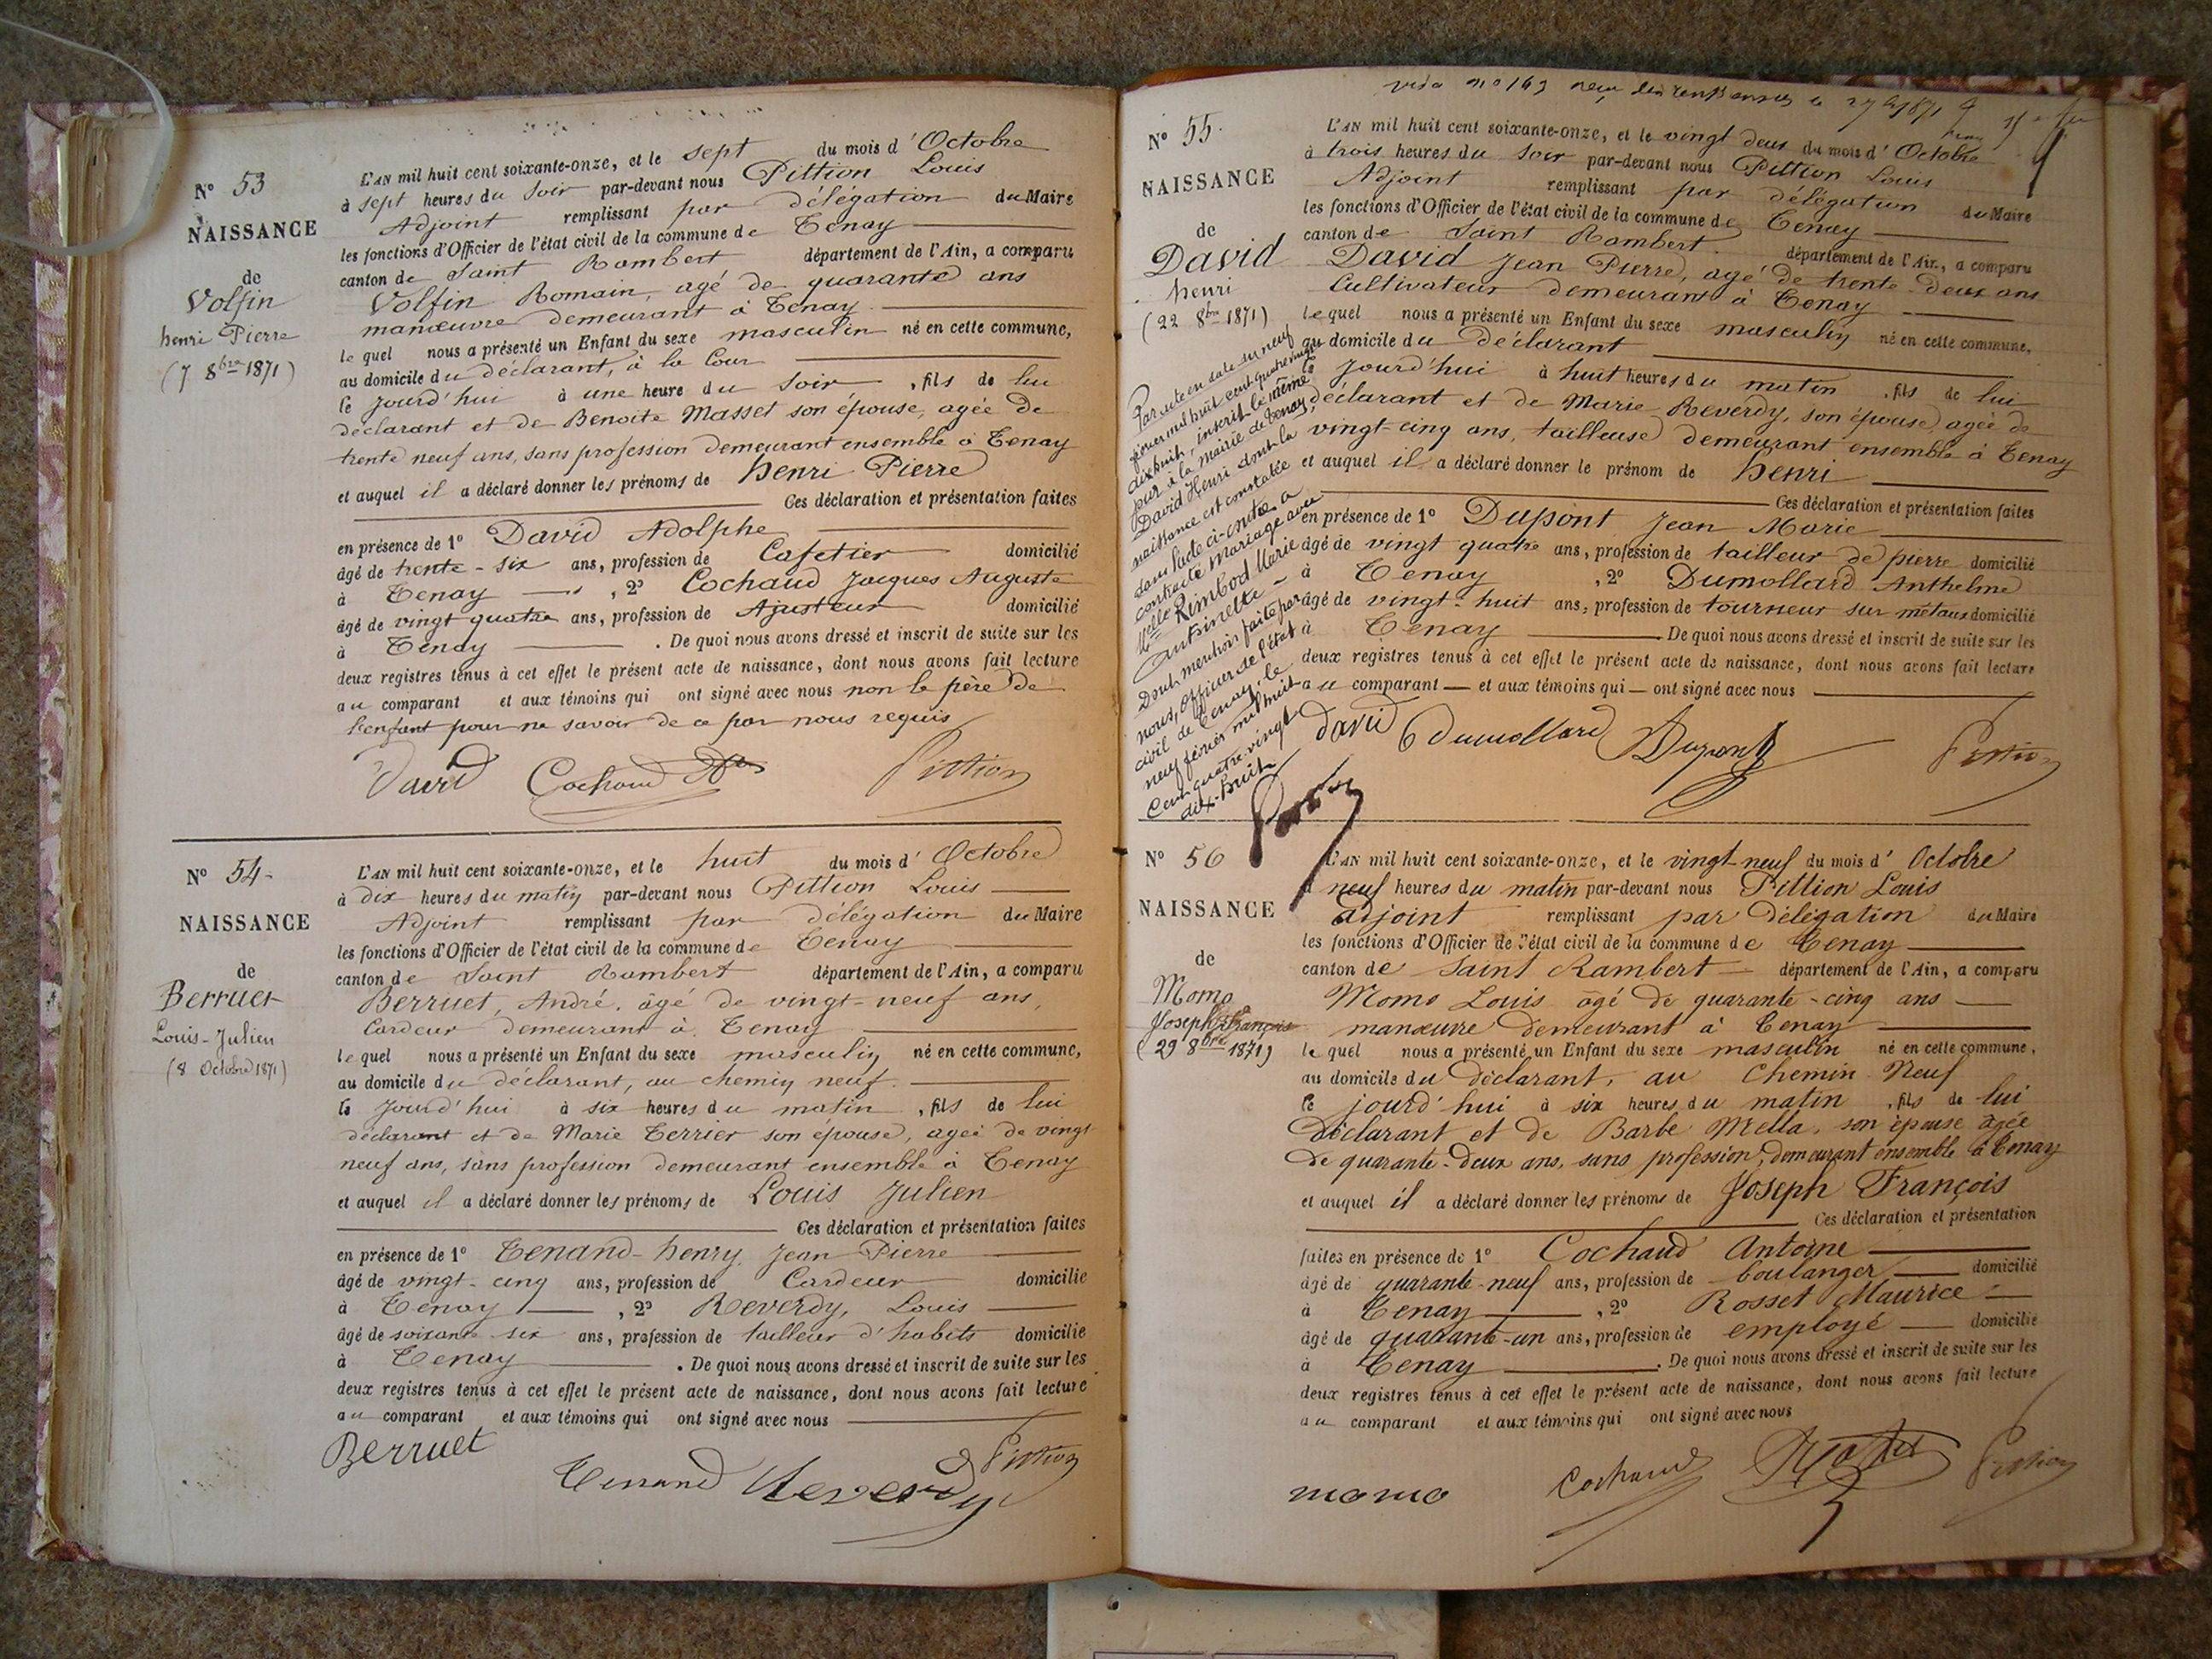 N° 53
NAISSANCE
de
Volfin
henri Pierre
(7 8bre 1871)
L'AN mil huit cent soixante-onze, et le sept du mois d'Octobre
à sept heures du soir par-devant nous Pittion Louis
Adjoint remplissant par délégation du Maire
les fonctions d'Officier de l'état civil de la commune de Tenay
canton de Saint Rambert département de l'Ain, a comparu
Volfin Romain, agé de quarante ans
manœuvre demeurant à Tenay
lequel nous a présenté un Enfant du sexe masculin né en cette commune,
au domicile du déclarant, à la Cour
le jourd'hui à une heure du soir, fils de lui
déclarant et de Benoite Masset son épouse, agée de
trente neuf ans, sans profession demeurant ensemble à Tenay
et auquel il a déclaré donner les prénoms de henri Pierre
Ces déclaration et présentation faites
en présence de 1° David Adolphe
âgé de trente-six ans, profession de Cafetier domicilié
à Tenay, 2° Cochaud Jacques Auguste
âgé de vingt quatre ans, profession de Ajusteur domicilié
à Tenay. De quoi nous avons dressé et inscrit de suite sur les
deux registres tenus à cet effet le présent acte de naissance, dont nous avons fait lecture
au comparant et aux témoins qui ont signé avec nous non le père de
l'enfant pour ne savoir de ce par nous requis
David Cochaud Pittion
N° 54
NAISSANCE
de
Berruet
Louis-Julien
(8 Octobre 1871)
L'AN mil huit cent soixante-onze, et le huit du mois d'Octobre
à dix heures du matin par-devant nous Pittion Louis
Adjoint remplissant par délégation du Maire
les fonctions d'Officier de l'état civil de la commune de Tenay
canton de Saint Rambert département de l'Ain, a comparu
Berruet, André, âgé de vingt-neuf ans,
Cardeur demeurant à Tenay
lequel nous a présenté un Enfant du sexe masculin né en cette commune,
au domicile du déclarant, au chemin neuf
le jourd'hui à six heures du matin, fils de lui
déclarant et de Marie Terrier son épouse, agée de vingt
neuf ans, sans profession demeurant ensemble à Tenay
et auquel il a déclaré donner les prénoms de Louis Julien
Ces déclaration et présentation faites
en présence de 1° Tenand-henry, Jean Pierre
âgé de vingt-cinq ans, profession de Cardeur domicilié
à Tenay, 2° Reverdy, Louis
âgé de soixante six ans, profession de tailleur d'habits domicilié
à Tenay. De quoi nous avons dressé et inscrit de suite sur les
deux registres tenus à cet effet le présent acte de naissance, dont nous avons fait lecture
au comparant et aux témoins qui ont signé avec nous
Berruet Tenand Reverdy Pittion
N° 55
NAISSANCE
de
David
henri
(22 8bre 1871)
Par acte en date du neuf
février mil huit cent quatre vingt
dix huit, inscrit le même
jour à la mairie de Tenay,
David Henri dont la
naissance est constatée
dans l'acte ci-contre a
contracté mariage avec
Melle Rimbod Marie
Antoinette
Dont mention faite par
nous, officier de l'état
civil de Tenay, le
neuf février mil huit
cent quatre vingt
dix-huit
L'AN mil huit cent soixante-onze, et le vingt deux du mois d'Octobre
à trois heures du soir par-devant nous Pittion Louis
Adjoint remplissant par délégation du Maire
les fonctions d'Officier de l'état civil de la commune de Tenay
canton de Saint Rambert département de l'Ain, a comparu
David Jean Pierre, agé de trente-deux ans
Cultivateur demeurant à Tenay
lequel nous a présenté un Enfant du sexe masculin né en cette commune,
au domicile du déclarant
le jourd'hui à huit heures du matin, fils de lui
déclarant et de Marie Reverdy, son épouse, agée de
vingt-cinq ans, tailleuse demeurant ensemble à Tenay
et auquel il a déclaré donner le prénom de henri
Ces déclaration et présentation faites
en présence de 1° Dupont Jean Marie
âgé de vingt quatre ans, profession de tailleur de pierre domicilié
à Tenay, 2° Dumollard Anthelme
âgé de vingt-huit ans, profession de tourneur sur métaux domicilié
à Tenay. De quoi nous avons dressé et inscrit de suite sur les
deux registres tenus à cet effet le présent acte de naissance, dont nous avons fait lecture
au comparant et aux témoins qui ont signé avec nous
David Dumollard Dupont Pittion
N° 56
NAISSANCE
de
Momo
Joseph François
(29 8bre 1871)
L'AN mil huit cent soixante-onze, et le vingt-neuf du mois d'Octobre
à neuf heures du matin par-devant nous Pittion Louis
adjoint remplissant par délégation du Maire
les fonctions d'Officier de l'état civil de la commune de Tenay
canton de Saint Rambert département de l'Ain, a comparu
Momo Louis âgé de quarante-cinq ans
manœuvre demeurant à Tenay
lequel nous a présenté un Enfant du sexe masculin né en cette commune,
au domicile du déclarant, au Chemin Neuf
le jourd'hui à six heures du matin, fils de lui
déclarant et de Barbe Mella, son épouse âgée
de quarante-deux ans, sans profession, demeurant ensemble à Tenay
et auquel il a déclaré donner les prénoms de Joseph François
Ces déclaration et présentation
faites en présence de 1° Cochaud Antoine
âgé de quarante-neuf ans, profession de boulanger domicilié
à Tenay, 2° Rosset Maurice
âgé de quarante-un ans, profession de employé domicilié
à Tenay. De quoi nous avons dressé et inscrit de suite sur les
deux registres tenus à cet effet le présent acte de naissance, dont nous avons fait lecture
au comparant et aux témoins qui ont signé avec nous
momo Cochaud Pittion